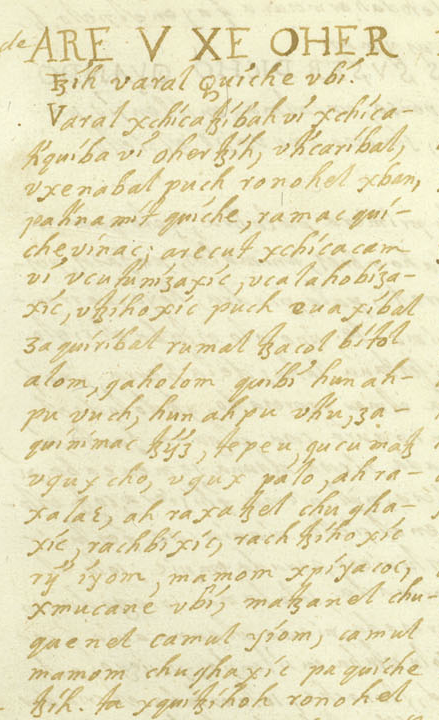 de ARE V XE OHER
ꜩíh varal Quíche vbí.
Varal xchícaꜩíbah ví xchíca-
tíquíba ví oher ꜩíh, vtícaríbal,
vxenabal puch ronohel xban,
pa tínamít quíche, ramac quí-
che vínac; arecut xchícacam
ví vcutunízaxíc, vcalahobíza-
xíc, vꜩíhoxíc puch euaxíbal
zaquíríbal rumal ꜩacol bítol
alom, qaholom quíbí hunah-
pu vuch, hunahpu vtíu, za-
quínímac ꜩýz, tepeu, qucumaꜩ
vqux cho, vqux palo, ah ra-
xalaꜫ, ah raxaꜩel chuqha-
xíc, rachbíxíc, rachꜩíhoxíc
rý íyom, mamom xpíyacoc,
xmucane vbí, maꜩanel chu-
quenel camul yíom, camul
mamom chuqhaxíc pa quíche
ꜩíh. ta xquíꜩíhoh ronohel